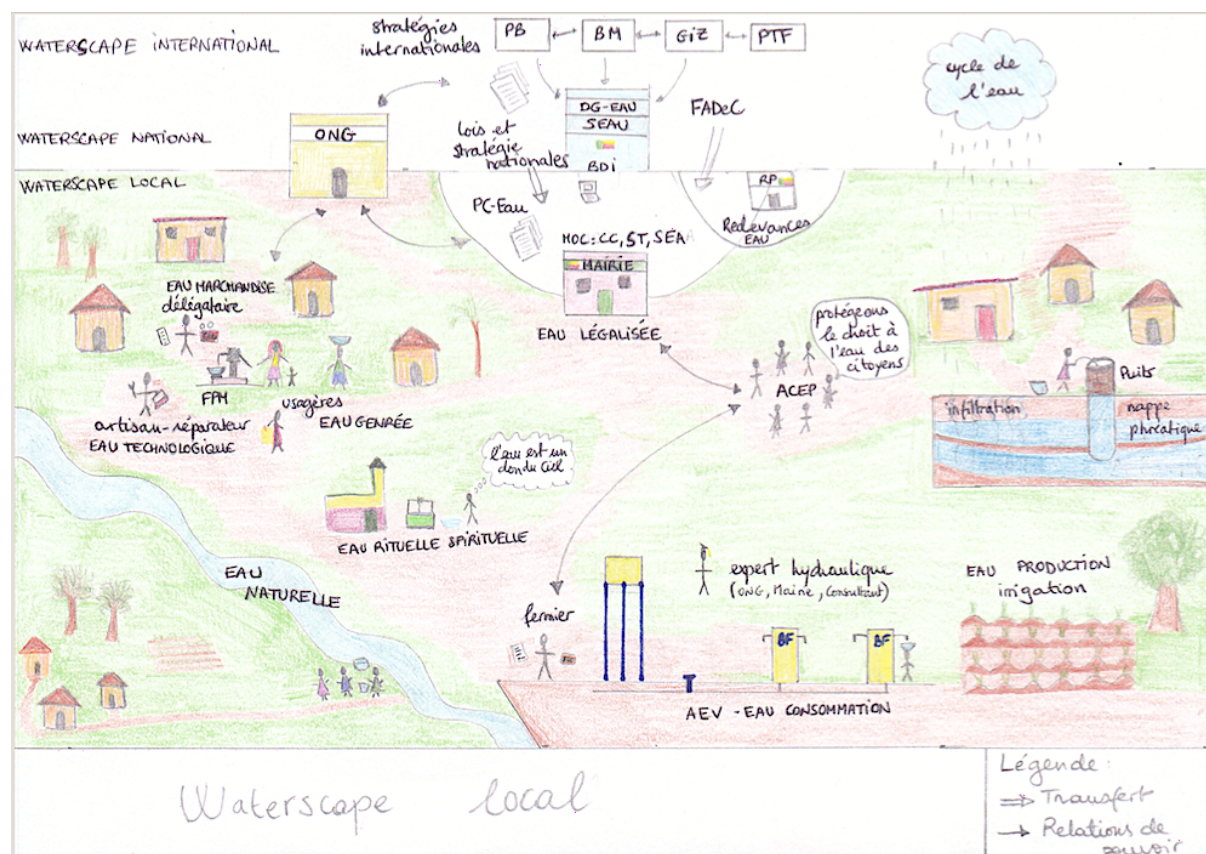 WATERSCAPE INTERNATIONAL
stratégies
internationales
PB
BM
GiZ
PTF
cycle de
l'eau
WATERSCAPE NATIONAL
ONG
lois et
stratégie
nationales
DG-EAU
SEAU
BDi
FADeC
WATERSCAPE LOCAL
PC-Eau
RP
Redevances
EAU
MOC: CC, ST, SEA
MAIRIE
EAU LÉGALISÉE
EAU MARCHANDISE
délégataire
FPM
usagères
EAU GENRÉE
artisan-réparateur
EAU TECHNOLOGIQUE
protégeons
le droit à
l'eau des
citoyens
ACEP
Puits
infiltration
nappe
phréatique
l'eau est un
don du Ciel
EAU RITUELLE SPIRITUELLE
EAU
NATURELLE
fermier
expert hydraulique
(ONG, Mairie, Consultant)
EAU PRODUCTION
irrigation
BF
BF
AEV - EAU CONSOMMATION
Waterscape local
Légende:
⇒ Transfert
→ Relations de
pouvoir